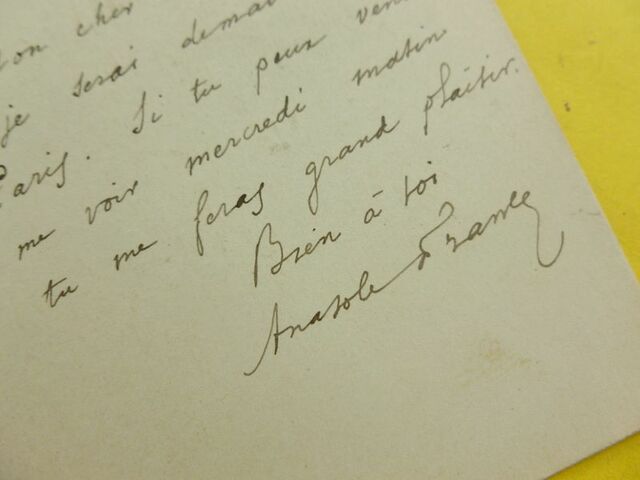 Mon cher
je serai demai
Paris. Si tu peux ven
me voir mercredi matin
tu me feras grand plaisir.
Bien à toi
Anatole France